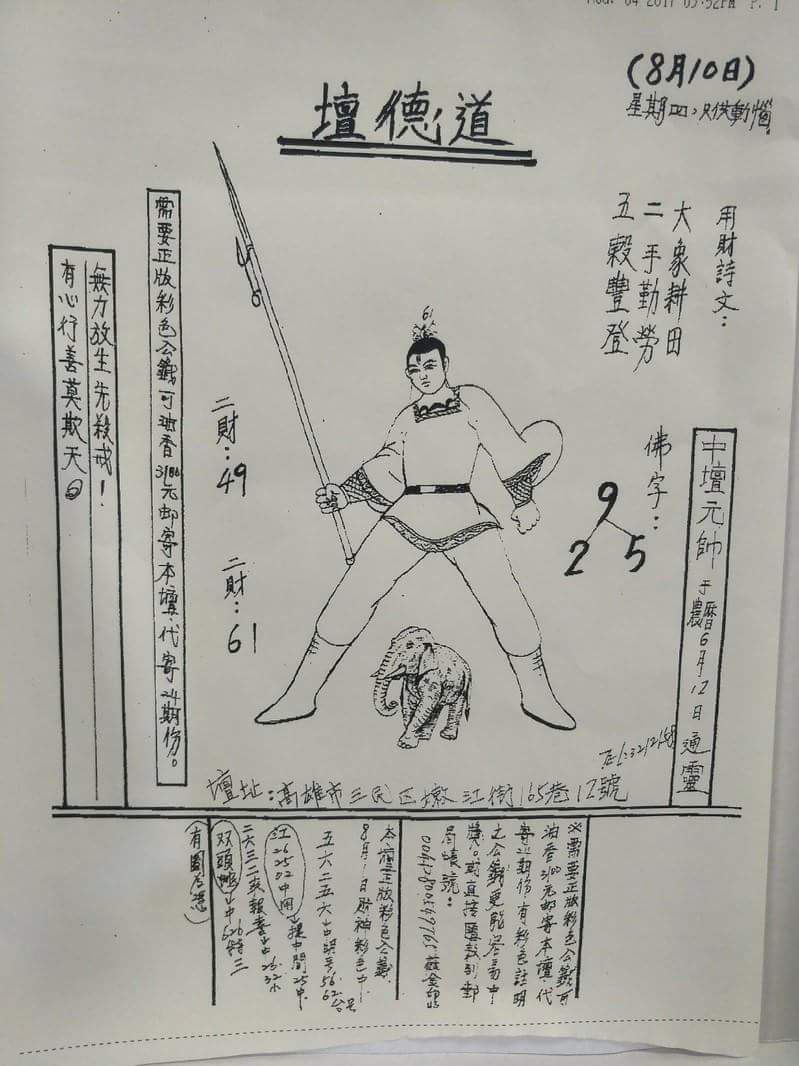 (8月10日)
星期四,只供動惱.
道德壇
用財詩文:
大象耕田
二手勤勞
五穀豐登
佛字:
9
2 5
中壇元帥于農曆6月12日通靈
61
二財:49
二財:61
需要正版彩色公籤可油香3100元邮寄本壇.代寄24期份。
無力放生先殺戒!
有心行善莫欺天
壇址:高雄市三民區墩江街165巷12號
※需要正版彩色公籤可
油香3100元邮寄本壇.代
寄24期份.有彩色註明
之公籤更能容易中
獎。或直接匯款到郵
局帳號:
本壇正版彩色公籤
8月1日財神彩色中:
五六二五六
江262502中用
二六三二次報喜
双頭